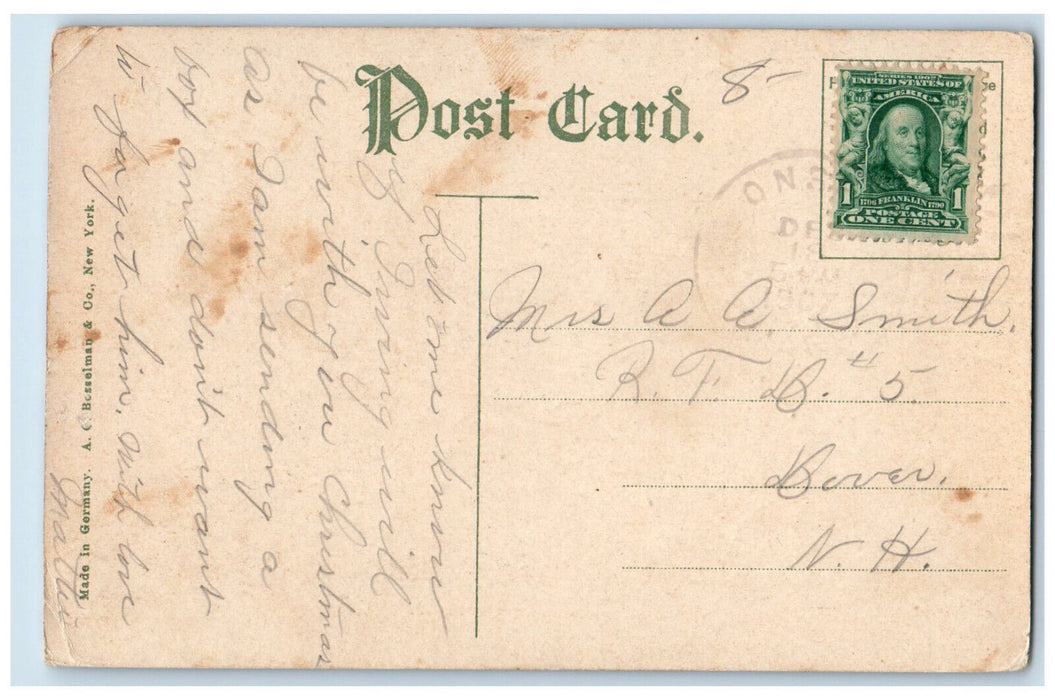 Post Card.
8-
SERIES 1902
UNITED STATES OF
AMERICA
1
1
1706 FRANKLIN 1790
POSTAGE
ONE CENT
Let me know
if Irving will
be with you Christmas
as I am sending a
box and don't want
to forget him. With love
Mattie
Mrs A A Smith.
R. F. D. #5.
Dover.
N. H.
Made in Germany. A. C. Bosselman & Co., New York.